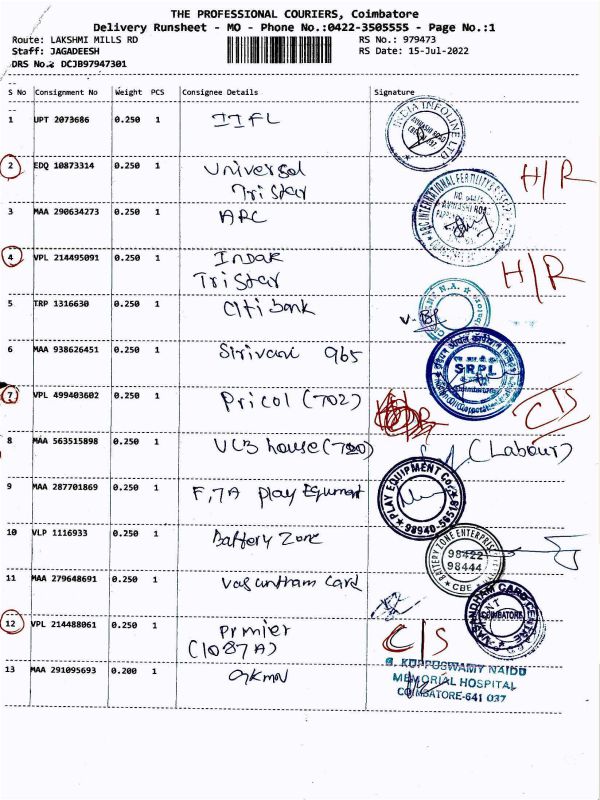 THE PROFESSIONAL COURIERS, Coimbatore
Delivery Runsheet - MO - Phone No.:0422-3505555 - Page No.:1
Route: LAKSHMI MILLS RD RS No.: 979473
Staff: JAGADEESH RS Date: 15-Jul-2022
DRS No.: DCJB97947301
S No Consignment No Weight PCS Consignee Details Signature
1 UPT 2073686 0.250 1 IIFL INDIA INFOLINE LTD
2 EDQ 10873314 0.250 1 Universal H/R
Tristar
3 MAA 290634273 0.250 1 ARC
4 VPL 214495091 0.250 1 INDAR H/R
Tristar
5 TRP 1316630 0.250 1 Citi bank N.A.
6 MAA 938626451 0.250 1 Srivari 965 SRPL
7 VPL 499403602 0.250 1 Pricol (702) C/S
8 MAA 563515898 0.250 1 VLB house (720) (Labour)
9 MAA 287701869 0.250 1 F,7A Play Equment PLAY EQUIPMENT Co. 98940-59518
10 VLP 1116933 0.250 1 Battery Zone BATTERY ZONE ENTERPRIS 98422 98444 CBE
11 MAA 279648691 0.250 1 Vasantham Card VASANDHAM CARD CENTRE COIMBATORE
12 VPL 214488061 0.250 1 Prmier C/S
(1087A)
13 MAA 291095693 0.200 1 GKMN G. KUPPUSWAMY NAIDU
MEMORIAL HOSPITAL
COIMBATORE-641 037